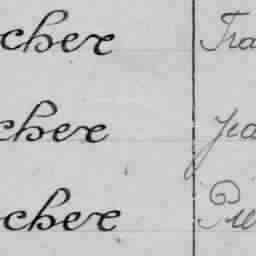 cher Tra
cher Jea
cher Pie